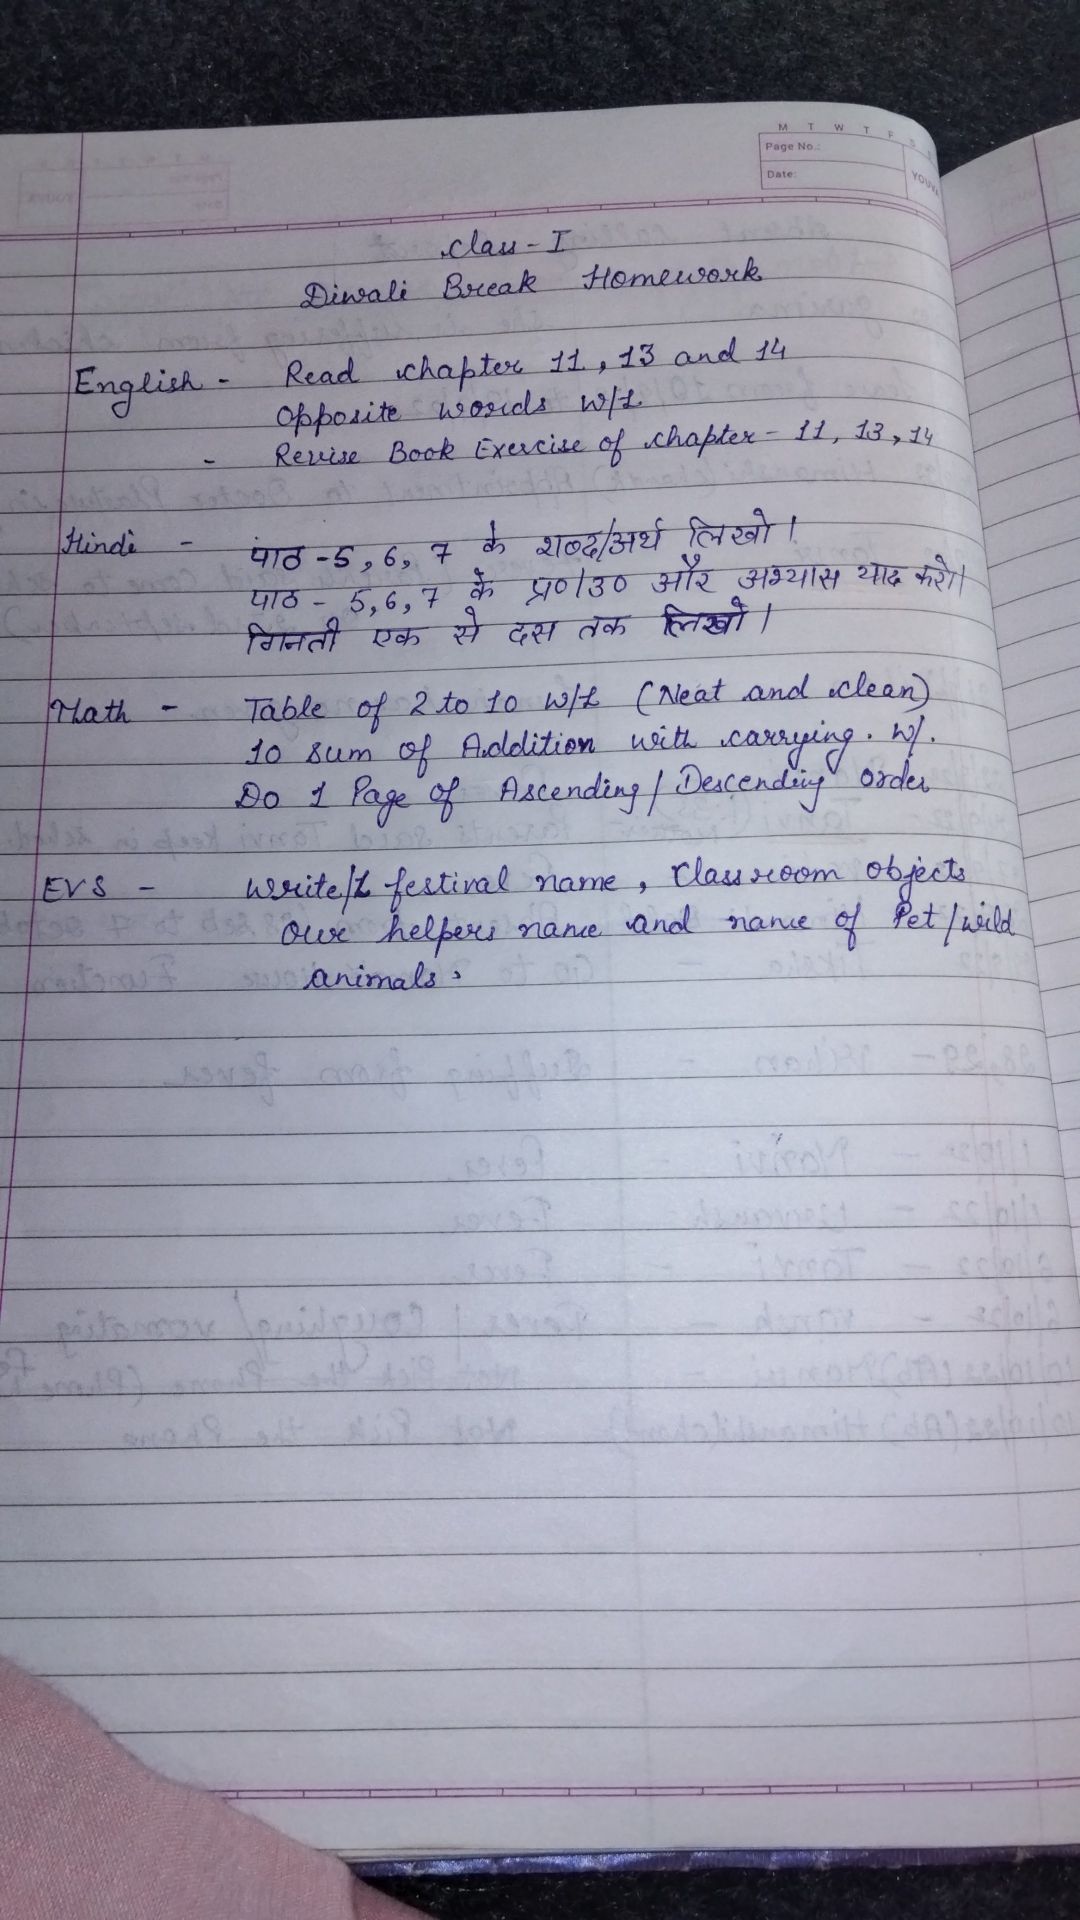 M T W T F S S
Page No.:
Date:
YOUVA
Class - I
Diwali Break Homework
English - Read chapter 11, 13 and 14
Opposite words W/L
- Revise Book Exercise of chapter - 11, 13, 14
Hindi - पाठ -5, 6, 7 के शब्द/अर्थ लिखो।
पाठ - 5,6,7 के प्र०/उ० और अभ्यास याद करो।
गिनती एक से दस तक लिखो।
Math - Table of 2 to 10 W/L (Neat and clean)
10 sum of Addition with carrying. W/.
Do 1 Page of Ascending / Descending order
EVS - Write/L festival name, Classroom objects
our helpers name and name of Pet / wild
animals.